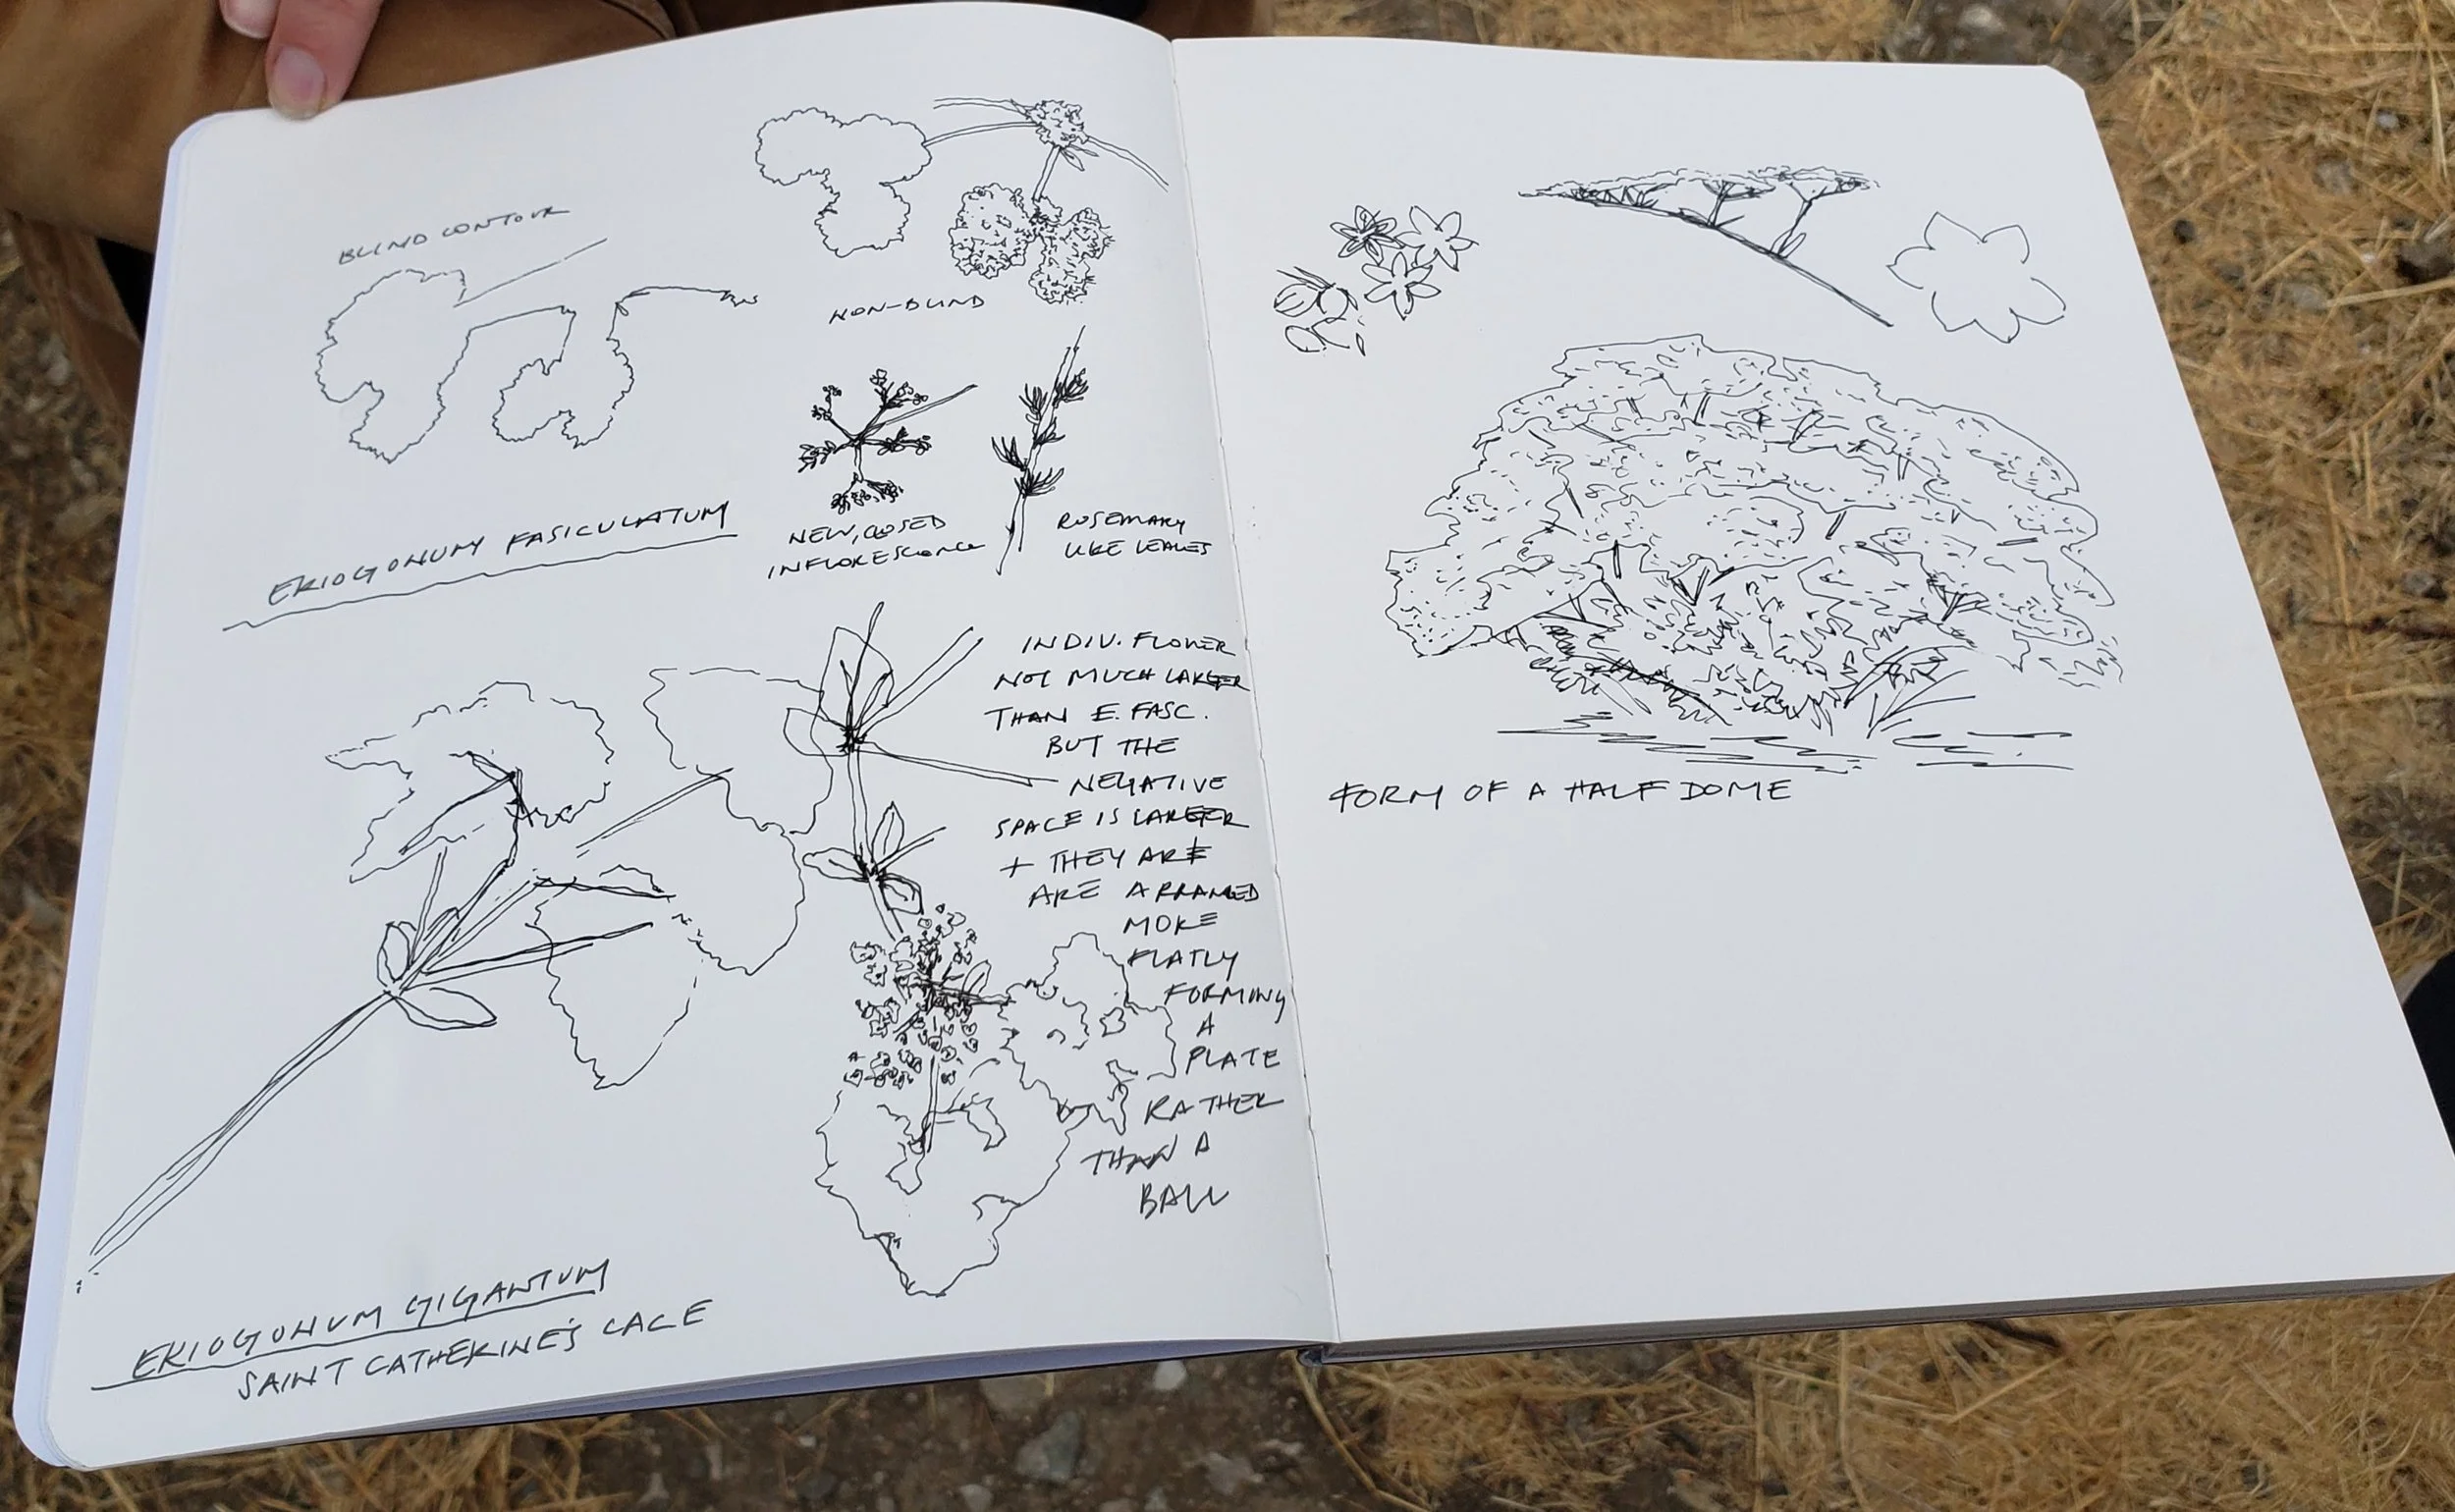 BLIND CONTOUR
NON-BLIND
ERIOGONUM FASICULATUM
NEW, CLOSED
INFLORESCENCE
ROSEMARY
LIKE LEAVES
INDIV. FLOWER
NOT MUCH LARGER
THAN E. FASC.
BUT THE
NEGATIVE
SPACE IS LARGER
+ THEY ARE
ARE ARRANGED
MORE
FLATLY
FORMING
A
PLATE
RATHER
THAN A
BALL
ERIOGONUM GIGANTUM
SAINT CATHERINE'S LACE
FORM OF A HALF DOME